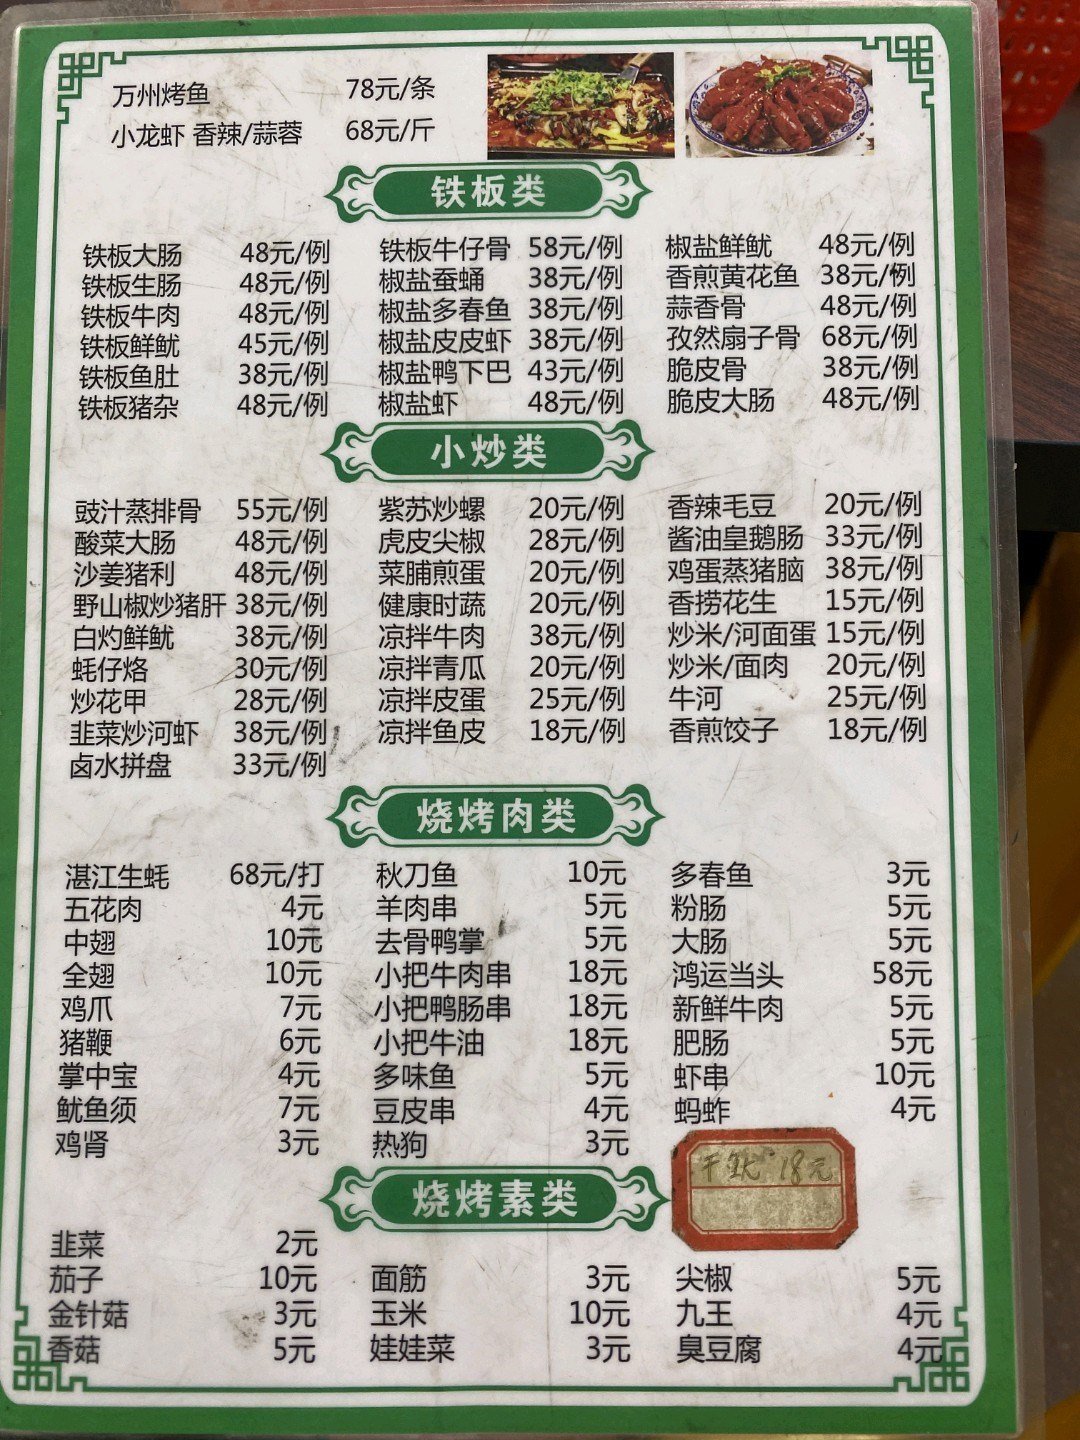 万州烤鱼 78元/条
小龙虾 香辣/蒜蓉 68元/斤
铁板类
铁板大肠 48元/例 铁板牛仔骨 58元/例 椒盐鲜鱿 48元/例
铁板生肠 48元/例 椒盐蚕蛹 38元/例 香煎黄花鱼 38元/例
铁板牛肉 48元/例 椒盐多春鱼 38元/例 蒜香骨 48元/例
铁板鲜鱿 45元/例 椒盐皮皮虾 38元/例 孜然扇子骨 68元/例
铁板鱼肚 38元/例 椒盐鸭下巴 43元/例 脆皮骨 38元/例
铁板猪杂 48元/例 椒盐虾 48元/例 脆皮大肠 48元/例
小炒类
豉汁蒸排骨 55元/例 紫苏炒螺 20元/例 香辣毛豆 20元/例
酸菜大肠 48元/例 虎皮尖椒 28元/例 酱油皇鹅肠 33元/例
沙姜猪利 48元/例 菜脯煎蛋 20元/例 鸡蛋蒸猪脑 38元/例
野山椒炒猪肝 38元/例 健康时蔬 20元/例 香捞花生 15元/例
白灼鲜鱿 38元/例 凉拌牛肉 38元/例 炒米/河面蛋 15元/例
蚝仔烙 30元/例 凉拌青瓜 20元/例 炒米/面肉 20元/例
炒花甲 28元/例 凉拌皮蛋 25元/例 牛河 25元/例
韭菜炒河虾 38元/例 凉拌鱼皮 18元/例 香煎饺子 18元/例
卤水拼盘 33元/例
烧烤肉类
湛江生蚝 68元/打 秋刀鱼 10元 多春鱼 3元
五花肉 4元 羊肉串 5元 粉肠 5元
中翅 10元 去骨鸭掌 5元 大肠 5元
全翅 10元 小把牛肉串 18元 鸿运当头 58元
鸡爪 7元 小把鸭肠串 18元 新鲜牛肉 5元
猪鞭 6元 小把牛油 18元 肥肠 5元
掌中宝 4元 多味鱼 5元 虾串 10元
鱿鱼须 7元 豆皮串 4元 蚂蚱 4元
鸡肾 3元 热狗 3元
干鱿 18元
烧烤素类
韭菜 2元
茄子 10元 面筋 3元 尖椒 5元
金针菇 3元 玉米 10元 九王 4元
香菇 5元 娃娃菜 3元 臭豆腐 4元